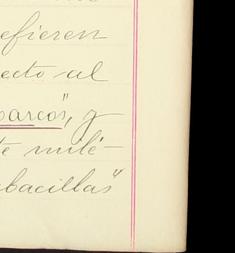 efieren
ecto al
barcos", y
te milé-
abacillas"